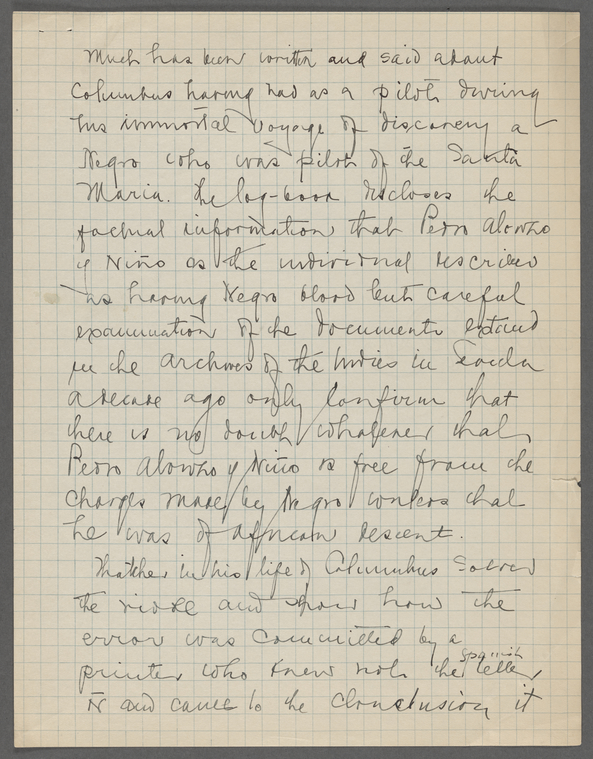 Much has been written and said about
Columbus having had as a pilot during
his immortal voyage of discovery a
Negro who was pilot of the Santa
Maria. The log-book discloses the
factual information that Pedro Alonzo
y Niño as the individual described
as having Negro blood but careful
examination of the documents
in the Archives of the Indies in Sevilla
a decade ago only confirm that
there is no doubt whatever that
Pedro Alonzo y Niño is free from the
charges made by Negro writers that
he was of African descent.
Thatcher in his life of Columbus solved
the riddle and show how the
error was committed by a
printer who knew not the Spanish letter
Ñ and came to the conclusion it